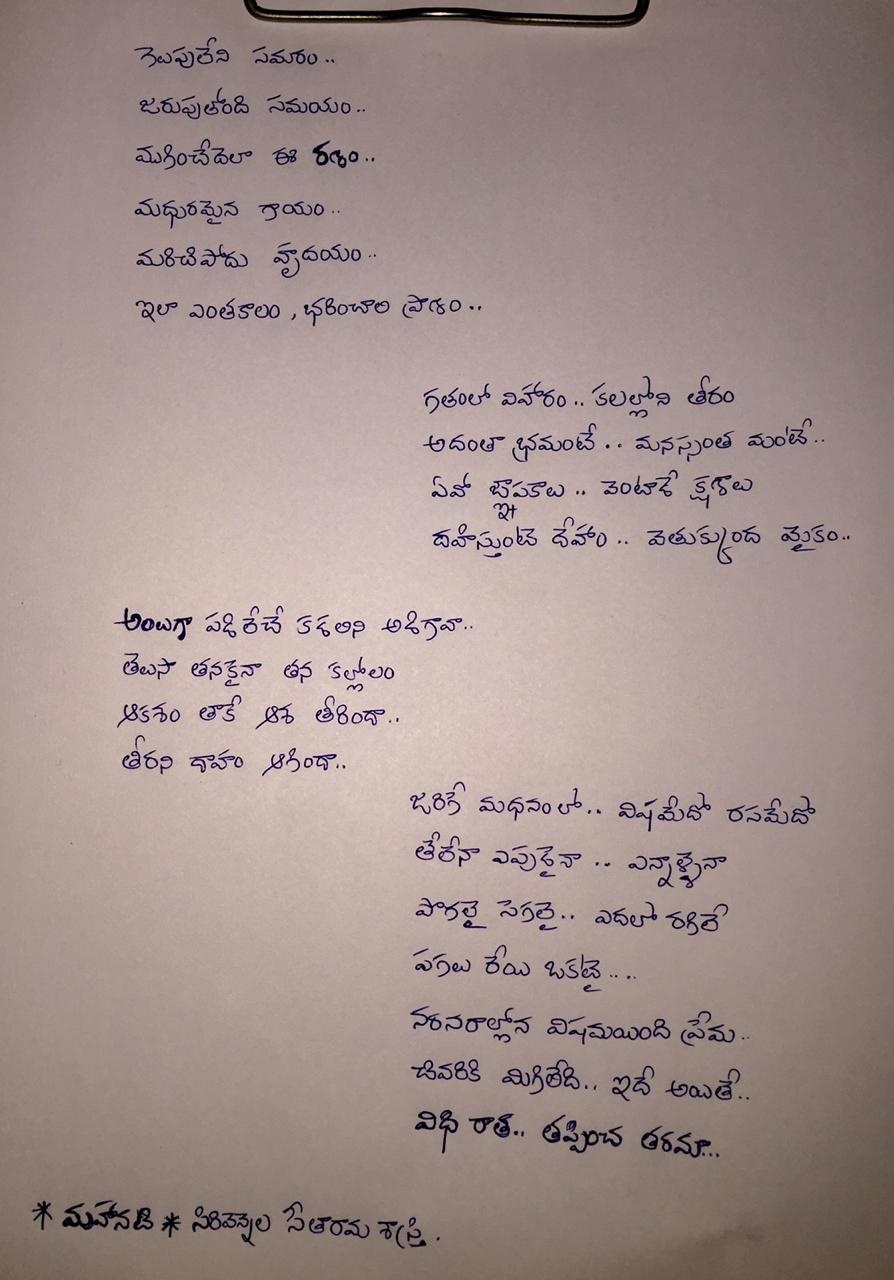 గెలుపులేని సమరం..
జరుపుతోంది సమయం..
ముగించేదెలా ఈ రణం..
మధురమైన గాయం..
మరిచిపోదు హృదయం..
ఇలా ఎంతకాలం, భరించాలి ప్రాణం..
గతంలో విహారం.. కలల్లోని తీరం
అదంతా భ్రమంటే.. మనస్సంత మంటే..
ఏవో జ్ఞాపకాలు.. వెంటాడే క్షణాలు
దహిస్తుంటె దేహం.. వెతుక్కుంద మైకం..
అలలుగా పడి లేచే కడలిని అడిగావా..
తెలుసా తనకైనా తన కల్లోలం
ఆకశం తాకే ఆశ తీరిందా..
తీరని దాహం ఆగిందా..
జరిగే మథనంలో.. విషమేదో రసమేదో
తేలేనా ఎపుడైనా.. ఎన్నాళ్ళైనా
పొగలై సెగలై.. ఎదలో రగిలే
పగలు రేయి ఒకటై....
నరనరాల్లోన విషమయింది ప్రేమ..
చివరికి మిగిలేది.. ఇదే అయితే..
విధి రాత.. తప్పించ తరమా...
* మహానటి * సిరివెన్నెల సీతారామ శాస్త్రి.